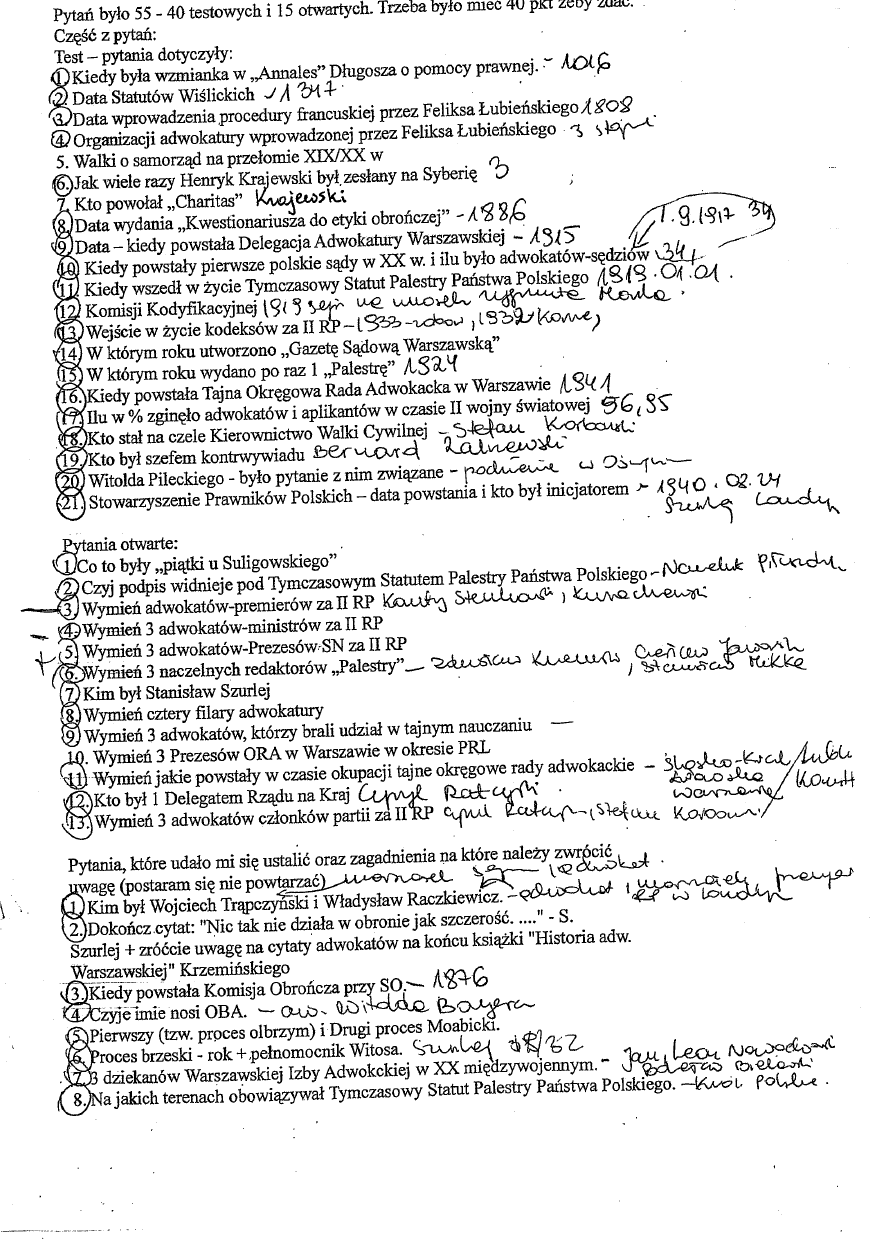 Pytań było 55 - 40 testowych i 15 otwartych. Trzeba było mieć 40 pkt żeby zdać.
Część z pytań:
Test – pytania dotyczyły:
1. Kiedy była wzmianka w „Annales” Długosza o pomocy prawnej. - 1016
2. Data Statutów Wiślickich 1347
3. Data wprowadzenia procedury francuskiej przez Feliksa Łubieńskiego 1808
4. Organizacji adwokatury wprowadzonej przez Feliksa Łubieńskiego 3
5. Walki o samorząd na przełomie XIX/XX w
6. Jak wiele razy Henryk Krajewski był zesłany na Syberię 3
7. Kto powołał „Charitas” Krajewski
8. Data wydania „Kwestionariusza do etyki obrończej” - 1886
9. Data – kiedy powstała Delegacja Adwokatury Warszawskiej – 1915
1.9.1917
10. Kiedy powstały pierwsze polskie sądy w XX w. i ilu było adwokatów-sędziów 34
11. Kiedy wszedł w życie Tymczasowy Statut Palestry Państwa Polskiego 1919.01.01.
12. Komisji Kodyfikacyjnej 1919 sejm na wniosek Zygmunta
13. Wejście w życie kodeksów za II RP – 1933 - zobow, 1932 karne
14. W którym roku utworzono „Gazetę Sądową Warszawską”
15. W którym roku wydano po raz 1 „Palestrę” 1924
16. Kiedy powstała Tajna Okręgowa Rada Adwokacka w Warszawie 1941
17. Ilu w % zginęło adwokatów i aplikantów w czasie II wojny światowej 56,95
18. Kto stał na czele Kierownictwo Walki Cywilnej – Stefan Korboński
19. Kto był szefem kontrwywiadu Bernard Zakrzewski
20. Witolda Pileckiego - było pytanie z nim związane – podziemie w Oświęcimiu
21. Stowarzyszenie Prawników Polskich – data powstania i kto był inicjatorem – 1940.02.24
Szurlej Londyn
Pytania otwarte:
1. Co to były „piątki u Suligowskiego”
2. Czyj podpis widnieje pod Tymczasowym Statutem Palestry Państwa Polskiego – Naczelnik Piłsudski
3. Wymień adwokatów-premierów za II RP Steczkowski, Kucharzewski
4. Wymień 3 adwokatów-ministrów za II RP
5. Wymień 3 adwokatów-Prezesów SN za II RP
6. Wymień 3 naczelnych redaktorów „Palestry” – Zdzisław Krzemiński, Czesław Jaworski, Stanisław Mikke
7. Kim był Stanisław Szurlej
8. Wymień cztery filary adwokatury
9. Wymień 3 adwokatów, którzy brali udział w tajnym nauczaniu
10. Wymień 3 Prezesów ORA w Warszawie w okresie PRL
11. Wymień jakie powstały w czasie okupacji tajne okręgowe rady adwokackie –
12. Kto był 1 Delegatem Rządu na Kraj Cyryl Ratajski
13. Wymień 3 adwokatów członków partii za II RP Cyryl Ratajski, Stefan Korboński
Pytania, które udało mi się ustalić oraz zagadnienia na które należy zwrócić
uwagę (postaram się nie powtarzać)
1. Kim był Wojciech Trąpczyński i Władysław Raczkiewicz. – adwokat i marszałek
2. Dokończ cytat: "Nic tak nie działa w obronie jak szczerość. ...." - S.
Szurlej + zróćcie uwagę na cytaty adwokatów na końcu książki "Historia adw.
Warszawskiej" Krzemińskiego
3. Kiedy powstała Komisja Obrończa przy SO. – 1876
4. Czyje imie nosi OBA. – adw. Witolda Bayera
5. Pierwszy (tzw. proces olbrzym) i Drugi proces Moabicki.
6. Proces brzeski - rok + pełnomocnik Witosa. Szurlej
7. 3 dziekanów Warszawskiej Izby Adwokckiej w XX międzywojennym. – Jan, Leon Nowodworski
8. Na jakich terenach obowiązywał Tymczasowy Statut Palestry Państwa Polskiego. – Król. Polskie.